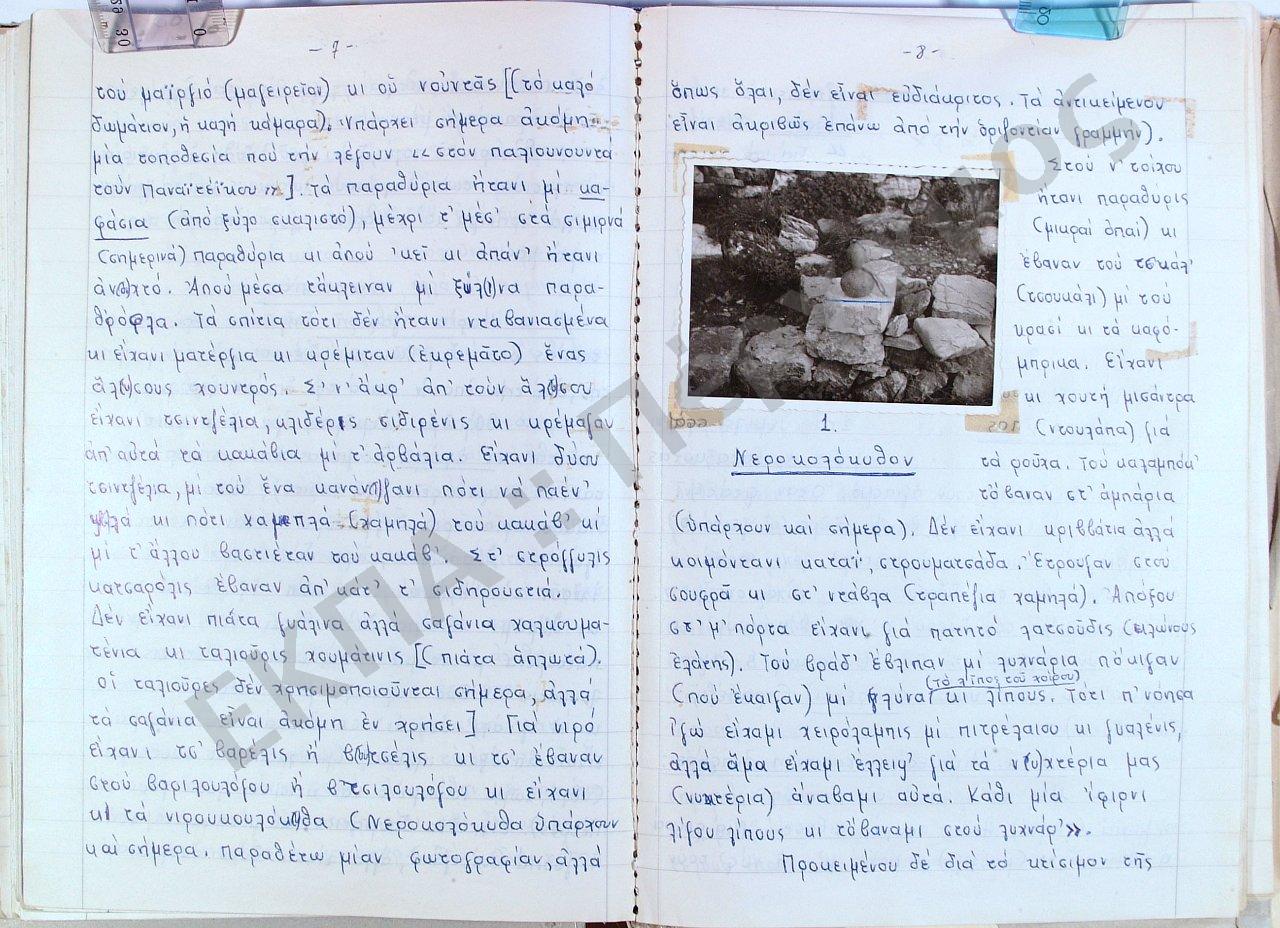 - 7 -
τοὺ μαϊργιό (μαγειρεῖον) κι οὗ νουντᾶς [(τό καλό
δωμάτιον, ἡ καλή κάμαρα). Ὑπάρχει σήμερα ἀκόμη
μία τοποθεσία πού τήν λέγουν «στόν παλιουνουντά
τοὺν Παναϊτσίκου»]. Τά παραθύρια ἤτανι μί κα-
φάσια (ἀπό ξύλο σκαλιστό), μέχρι τ' μέσ' στά σιμιρνά
(σημερινά) παραθύρια κι ἀπού 'κεῖ κι ἀπάν' ἤτανι
ἀν(οι)χτό. Ἀπού μέσα τἄκλειναν μί ξύλ(ι)να παρα-
θρόφλα. Τά σπίτια τότι δέν ἤτανι νταβανιασμένα
κι εἴχανι ματέργια κι κρέμιταν (ἐκρεμᾶτο) ἕνας
ἅλ(υ)σους χουντρός. Σ' ν' ἄκρ' ἀπ' τοὺν ἅλ(υ)σου
εἴχανι τσιντζέλια, κλιδέρις σιδιρένις κι κρέμαζαν
ἀπ' αὐτά τά κακάβια μί τ' ἀρβάλια. Εἴχανι δύου
τσιντζέλια, μί τοὺ ἕνα κανόν(ι)ζανι πότι νά παέν'
ψ'λά κι πότι χαμπλά (χαμηλά) τοὺ κακάβ' κί
μί τ' ἄλλου βαστιέταν τοὺ κακάβ'. Στ' στρόγγυλις
κατσαρόλις ἔβαναν ἀπ' κάτ' τ' σιδηρουστιά.
Δέν εἴχανι πιάτα γυάλινα ἀλλά σαγάνια χαλκουμα-
τένια κι ταλιοῦρις χουμάτινις [(πιάτα ἁπλωτά).
οἱ ταλιοῦρες δέν χρησιμοποιοῦνται σήμερα, ἀλλά
τά σαγάνια εἶναι ἀκόμη ἐν χρήσει] Γιά νιρό
εἴχανι τσ' βαρέλις ἤ β(ου)τσέλις κι τσ' ἔβαναν
στοὺ βαριλουλόγου ἤ β'τσιλουλόγου κι εἴχανι
κι τά νιρουκουλόκ(υ)θα (Νεροκολόκυθα ὑπάρχουν
καί σήμερα. Παραθέτω μίαν φωτογραφίαν, ἀλλά
- 8 -
ὅπως ὅλαι, δέν εἶναι εὐδιάκριτος. Τό ἀντικείμενον
εἶναι ἀκριβῶς ἐπάνω ἀπό τήν ὁριζοντίαν γραμμήν).
Στοὺ ν' τοίχου
ἤτανι παραθύρις
(μικραί ὀπαί) κι
ἔβαναν τοὺ τσκάλ'
(τσουκάλι) μί τοὺ
κρασί κι τά καφό-
μπρικα. Εἴχανι
κι χουτή μισάντρα
(ντουλάπα) γιά
τά ροῦχα. Τοὺ καλαμπόκ'
τὄβαναν στ' ἀμπάρια
1.
Νεροκολόκυθον
(ὑπάρχουν καί σήμερα). Δέν εἴχανι κριββάτια ἀλλά
κοιμόντανι καταΐ, στρουματσάδα. Ἔτρουγαν στοὺ
σουφρᾶ κι στ' ντάβλα (τραπέζια χαμηλά). Ἀπόξου
στ' μ' πόρτα εἴχανι γιά πατητό λατσούδις (κλώνους
ἐλάτης). Τοὺ βράδ' ἔβλιπαν μί λυχνάρια πὄκιγαν
(πού ἔκαιγαν) μί γλύνα κι λίπους. Τότι π' νόησα
(τό λίπος τοῦ χοίρου)
ἰγώ εἴχαμι χειρόλαμπις μί πιτρέλαιου κι γυαλένις,
ἀλλά ἅμα εἴχαμι ἔλλειψ' γιά τά ν(υ)χτέρια μας
(νυκτέρια) ἀνάβαμι αὐτά. Κάθι μία ἴφιρνι
λίγου λίπους κι τὄβαναμι στοὺ λυχνάρ'».
Προκειμένου δέ διά τό κτίσιμον τῆς
ΕΚΠΑ :: Πέργαμος